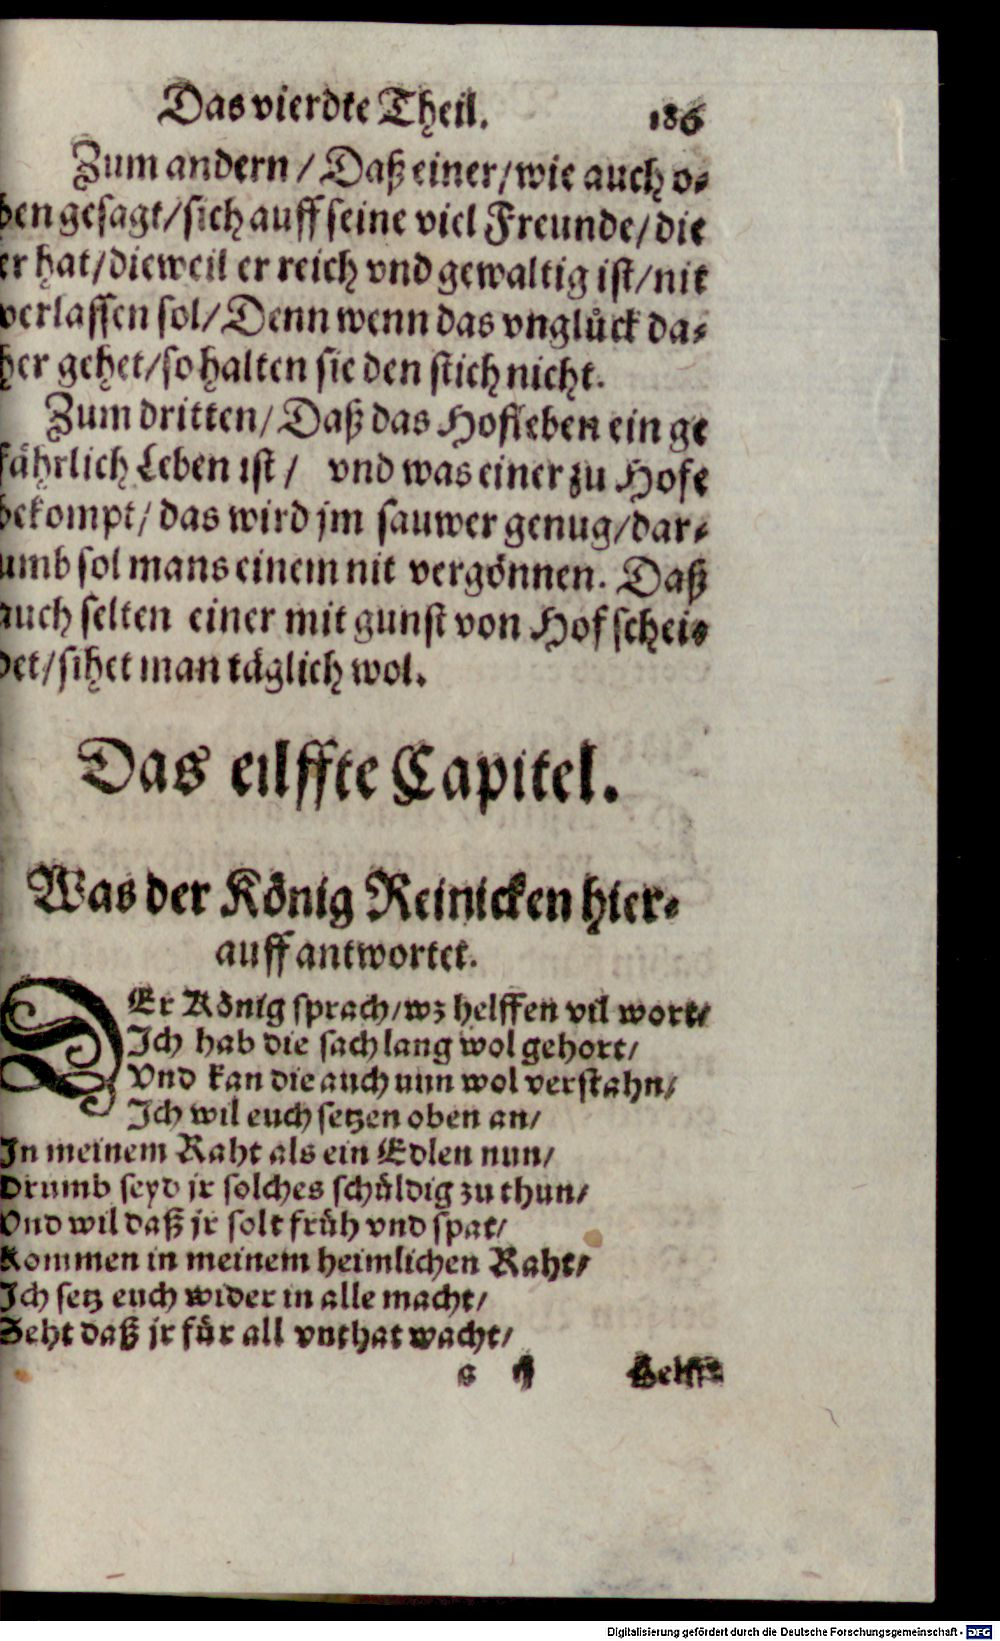 Das vierdte Theil. 186
Zum andern / Daß einer/wie auch o-
ben gesagt/sich auff seine viel Freunde/die
er hat/dieweil er reich vnd gewaltig ist/nit
verlassen sol/Denn wenn das vnglück da-
her gehet/so halten sie den stich nicht.
Zum dritten/Daß das Hofleben ein ge
fährlich Leben ist / vnd was einer zu Hofe
bekompt/das wird jm sauwer genug/dar-
umb sol mans einem nit vergönnen. Daß
auch selten einer mit gunst von Hof schei-
det/sihet man täglich wol.
Das eilffte Capitel.
Was der König Reinicken hier-
auff antwortet.
DEr König sprach/wz helffen vil wort/
Ich hab die sach lang wol gehort/
Vnd kan die auch nun wol verstahn/
Ich wil euch setzen oben an/
In meinem Raht als ein Edlen nun/
Drumb seyd jr solches schüldig zu thun/
Vnd wil daß jr solt früh vnd spat/
Kommen in meinem heimlichen Raht/
Ich setz euch wider in alle macht/
Seht daß jr für all vnthat wacht/
Digitalisierung gefördert durch die Deutsche Forschungsgemeinschaft - DFG